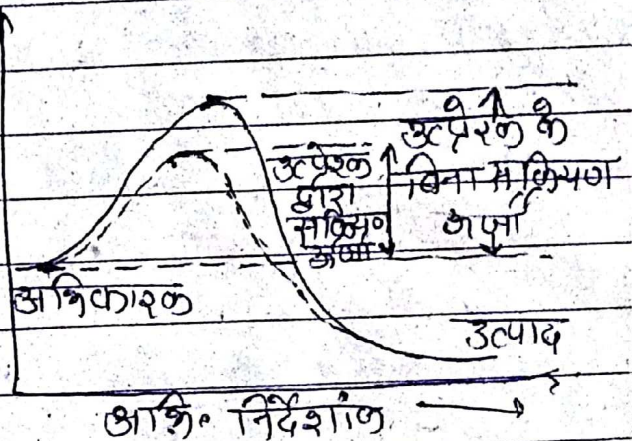 उत्प्रेरक के
बिना सक्रियण
ऊर्जा
उत्प्रेरक
द्वारा
सक्रियण
ऊर्जा
अभिकारक
उत्पाद
अभि॰ निर्देशांक